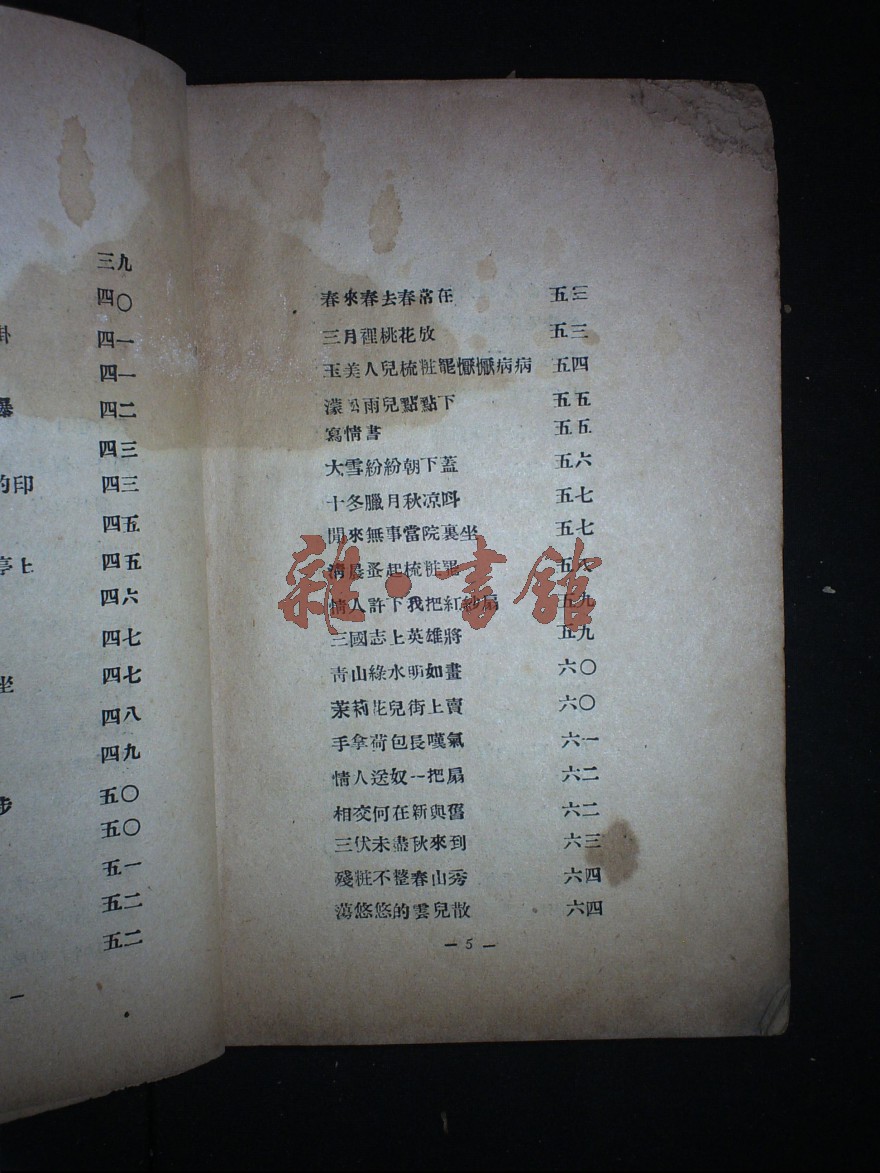 三九
四〇
掛 四一
四一
四二
四三
的印 四三
四五
亭上 四五
四六
四七
坐 四七
四八
四九
步 五〇
五〇
五一
五二
五二
春來春去春常在 五三
三月裡桃花放 五三
玉美人兒梳粧罷懨懨病病 五四
濛松雨兒點點下 五五
寫情書 五五
大雪紛紛朝下蓋 五六
十冬臘月秋凉 五七
閒來無事當院裏坐 五七
清晨蚤起梳粧罷 五八
情人許下我把紅紗扇 五九
三國志上英雄將 五九
青山綠水明如畫 六〇
茉莉花兒街上賣 六〇
手拿荷包長嘆氣 六一
情人送奴一把扇 六二
相交何在新與舊 六二
三伏未盡秋來到 六三
殘粧不整春山秀 六四
蕩悠悠的雲兒散 六四
— 5 —
雜·書館